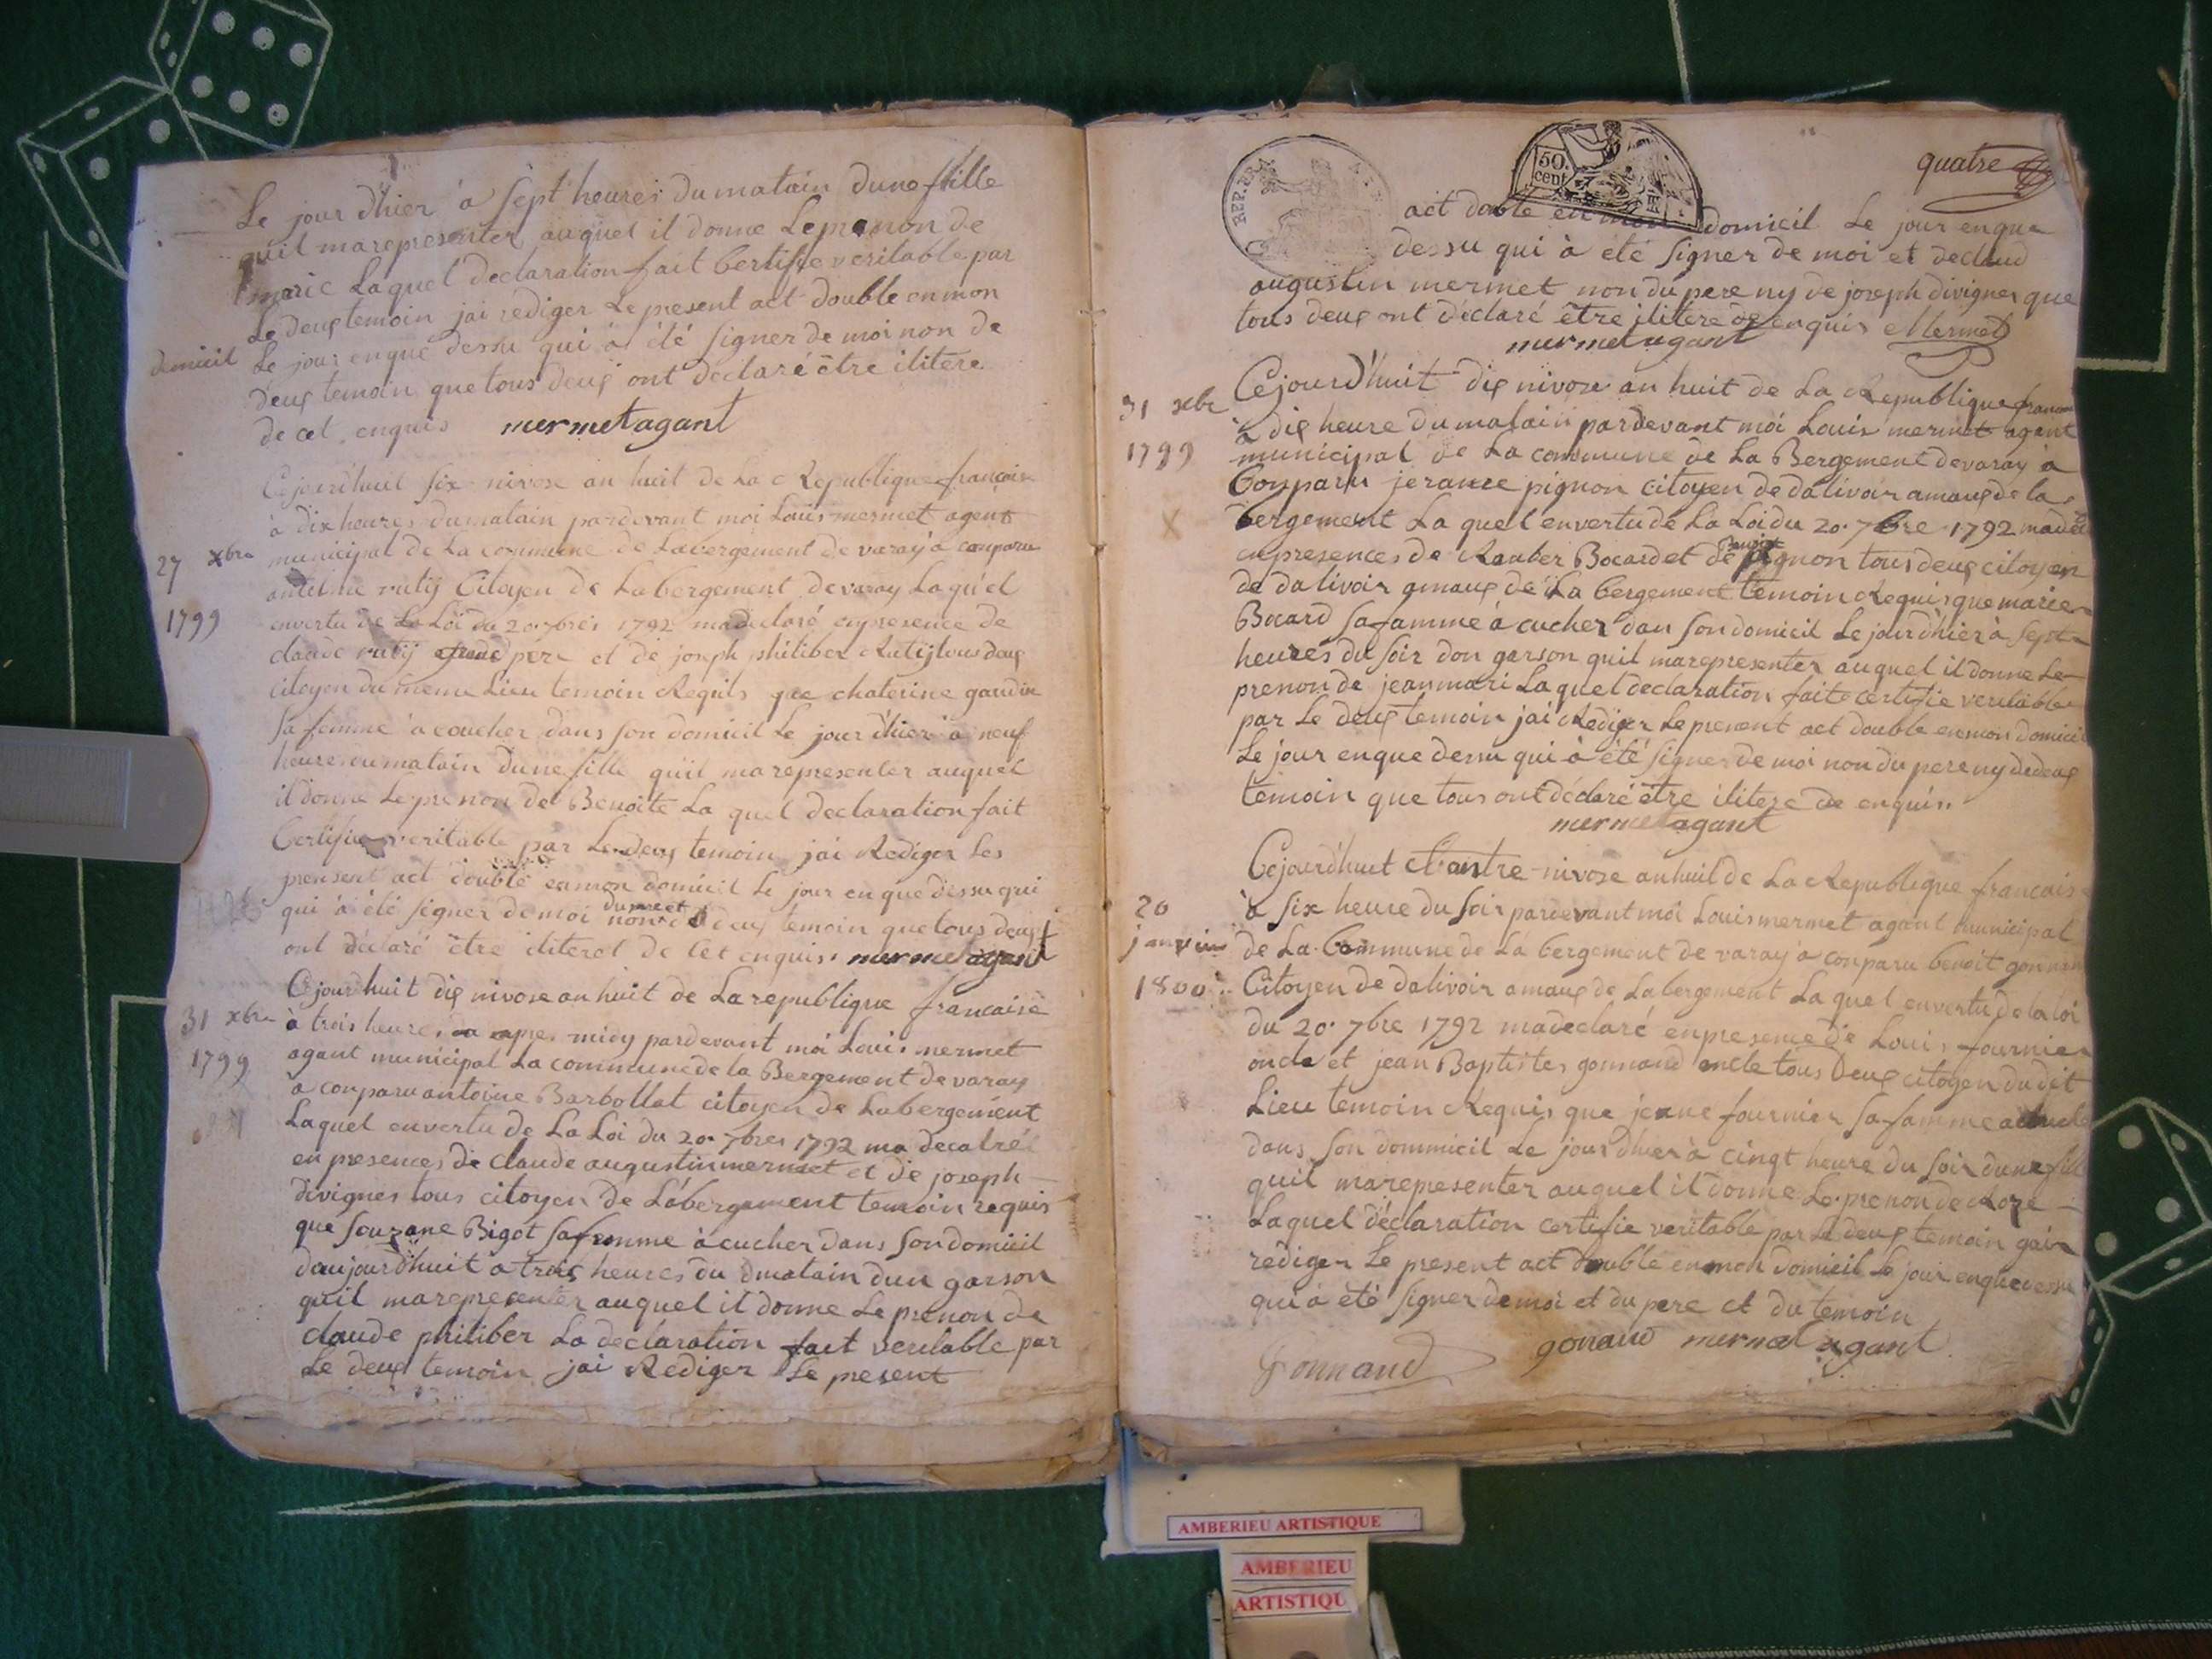 Le jour dhier à sept heures du matain dune fille
quil marepresenter auquel il donne Leprenon de
marie Laquel declaration fait Certifie veritable par
Le deux temoin jai rediger Le present act double enmon
domicil Le jour enque dessu qui à élé signer de moi non de
deux temoin que tous deux ont declaré être ilitere
de cet enquis mermet agant
Cejourdhuit six nivose an huit de La Republique françoise
à dix heures dumatain pardevant moi Louis mermet agent
27 xbre municipal de La commune de Labergement de varay à conparu
antelme rutij Citoyen de Labergement de varay Laquel
1799 envertu de La Loi du 20 7bres 1792 madeclaré enpresence de
claude rutij grand pere et de joseph philiber Rutij tous deux
citoyen du meme Lieu temoin Requis que chaterine gaudin
sa femme à coucher dans son domicil Le jour dhier à neuf
heures dumatain dune fille quil marepresenter auquel
il donne Leprenon de Benoite La quel declaration fait
Certifie veritable par Le deux temoin jai Rediger Les
prensent act double enmon domicil Le jour enque dessu qui
qui à élé signer de moi non du pere et de deux temoin que tous deux
ont déclaré être iliteret de cet enquis mermet agant
Cejourdhuit dix nivose an huit de La republique francaise
31 xbre à trois heures apres midy pardevant moi Louis mermet
1799 agant municipal La commune de la Bergement de varay
à conparu antoine Barbollat citoyen de Labergement
Laquel envertu de La Loi du 20. 7bres 1792 ma decalré
en presences de claude augustin mermet et de joseph
divignes tous citoyen de Labergement temoin requis
que souzane Bigot sa femme à cucher dans son domicil
daujourdhuit à trois heures du dmatain dun garson
quil marepresenter auquel il donne Le prenon de
claude philiber La declaration fait veritable par
Le deux temoin jai Rediger Le present
50. cent
REP.
quatre
act doble en mon domicil Le jour enque
dessu qui à eté signer de moi et declaud
augustin mermet non du pere ny de joseph divignes que
tous deux ont déclaré être ilitere de enquis Mermet
mermet agant
Cejourdhuit dix nivose an huit de La Republique francaise
31 xbre à dix heure du matain pardevant moi Louis mermet agant
1799 municipal de La commune de La Bergement devaray à
Conparu jerance pignon citoyen de dalivoir amaux de la
X bergement La quel envertu de La Loi du 20. 7bre 1792 madeclaré
enpresences de Rauber Bocard et de pignon tous deux citoyen
de dalivoir amaux de La bergement temoin Requis que marie
Bocard sa famme à cucher dan son domicil Le jour dhier à sept
heures du soir don garson quil marepresenter auquel il donne Le
prenon de jean mari Laquel declaration fait certifie veritable
par Le deux temoin jai Rediger Le prenent act double enmon domicil
Le jour enque dessu qui à été signer de moi non du pere ny de deux
temoin que tous ont déclaré être ilitere de enquis.
mermet agant
Cejourdhuit trantre nivose an huit de La Republique francaise
20 à six heure du soir pardevant moi Louis mermet agant municipal
janvier de La Commune de La bergement de varay à conparu benoit gonnand
1800 Citoyen de dalivoir amaux de Labergement La quel envertu de la loi
du 20. 7bre 1792 madeclaré enpresence de Louis fournier
oncle et jean Baptistes gonnand oncle tous deux citoyen du dit
Lieu temoin Requis que jeane fournier sa famme a cucher
dans son dommicil Le jour dhier à cinqt heure du soir dune fille
quil marepresenter auquel il donne Le prenon de Roze
Laquel déclaration certifie veritable par Le deux temoin jai
rediger Le present act double enmon domicil Le jour enque dessu
qui à été signer de moi et du pere et du temoin
gonnand mermet agant
Gonnand
AMBERIEU ARTISTIQUE
AMBERIEU
ARTISTIQU